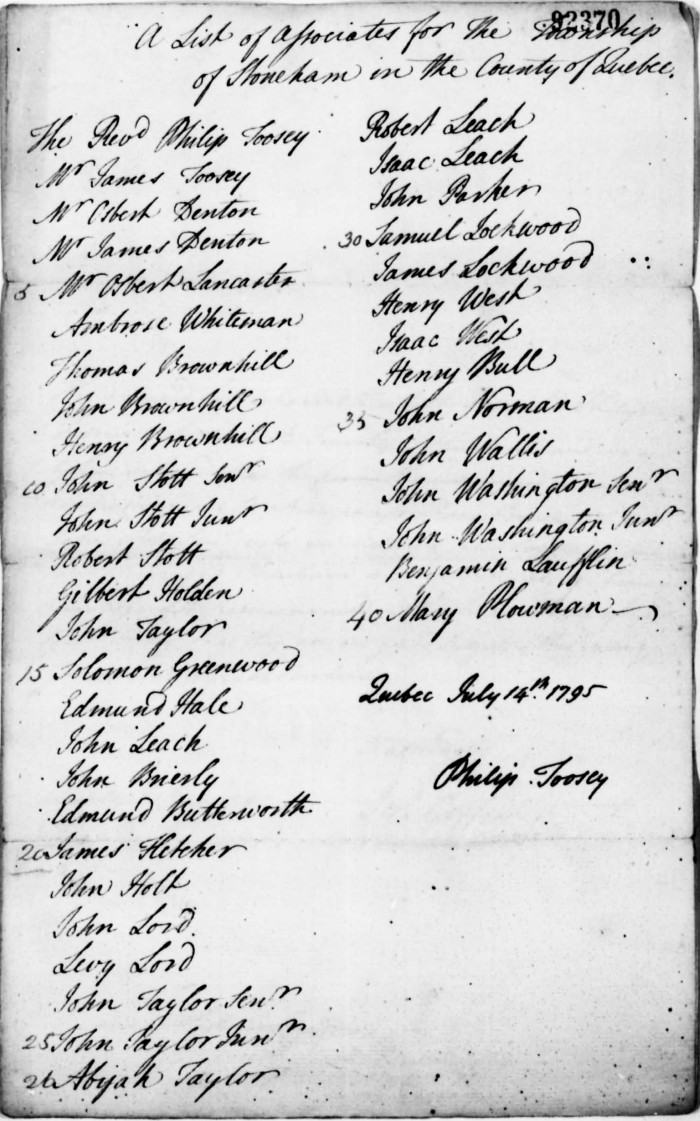 92370
A List of Associates for the Township
of Stoneham in the County of Quebec.
The Revd Philip Toosey
Mr James Toosey
Mr Osbert Denton
Mr James Denton
5 Mr Osbert Lancaster
Ambrose Whiteman
Thomas Brownhill
John Brownhill
Henry Brownhill
10 John Stott Senr
John Stott Junr
Robert Stott
Gilbert Holden
John Taylor
15 Solomon Greenwood
Edmund Hale
John Leach
John Brierly
Edmund Butterworth
20 James Fletcher
John Holt
John Lord
Levy Lord
John Taylor Senr
25 John Taylor Junr
26 Abijah Taylor
Robert Leach
Isaac Leach
John Parker
30 Samuel Lockwood
James Lockwood
Henry West
Isaac West
Henry Bull
35 John Norman
John Wallis
John Washington Senr
John Washington Junr
Benjamin Laufflin
40 Mary Plowman
Quebec July 14th 1795
Philip Toosey